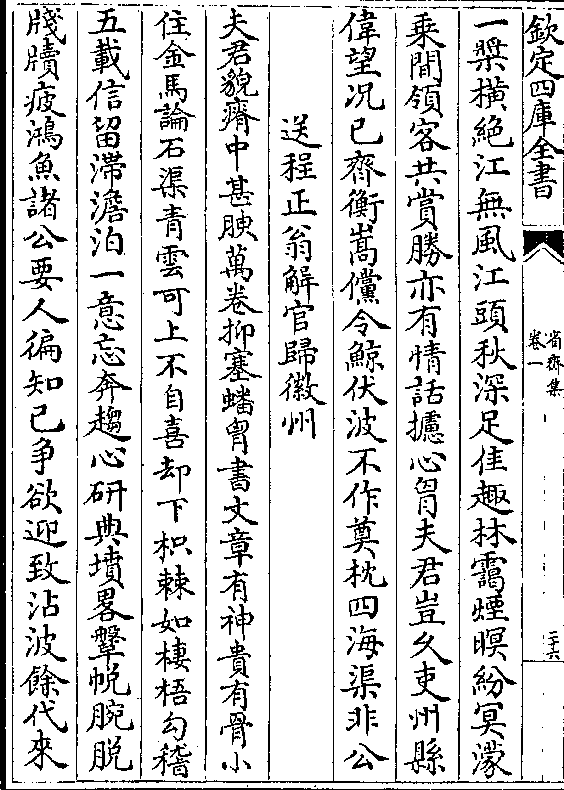 欽定四庫全書
省齋集
卷一
二十六
一槳橫絶江無風江頭秋深足佳趣林靄煙暝紛冥濛
乘間領客共賞勝亦有情話攄心胷夫君豈久吏州縣
偉望况已齊衡嵩儻令鯨伏波不作奠枕四海渠非公
送程正翁解官歸徽州
夫君貌瘠中甚腴萬卷抑塞蟠胷書文章有神貴有骨小
住金馬論石渠青雲可上不自喜却下枳棘如棲梧勾稽
五載信留滯澹泊一意忘奔趨心研典墳畧鞶帨腕脱
牋牘疲鴻魚諸公要人徧知己争欲迎致沾波餘代來